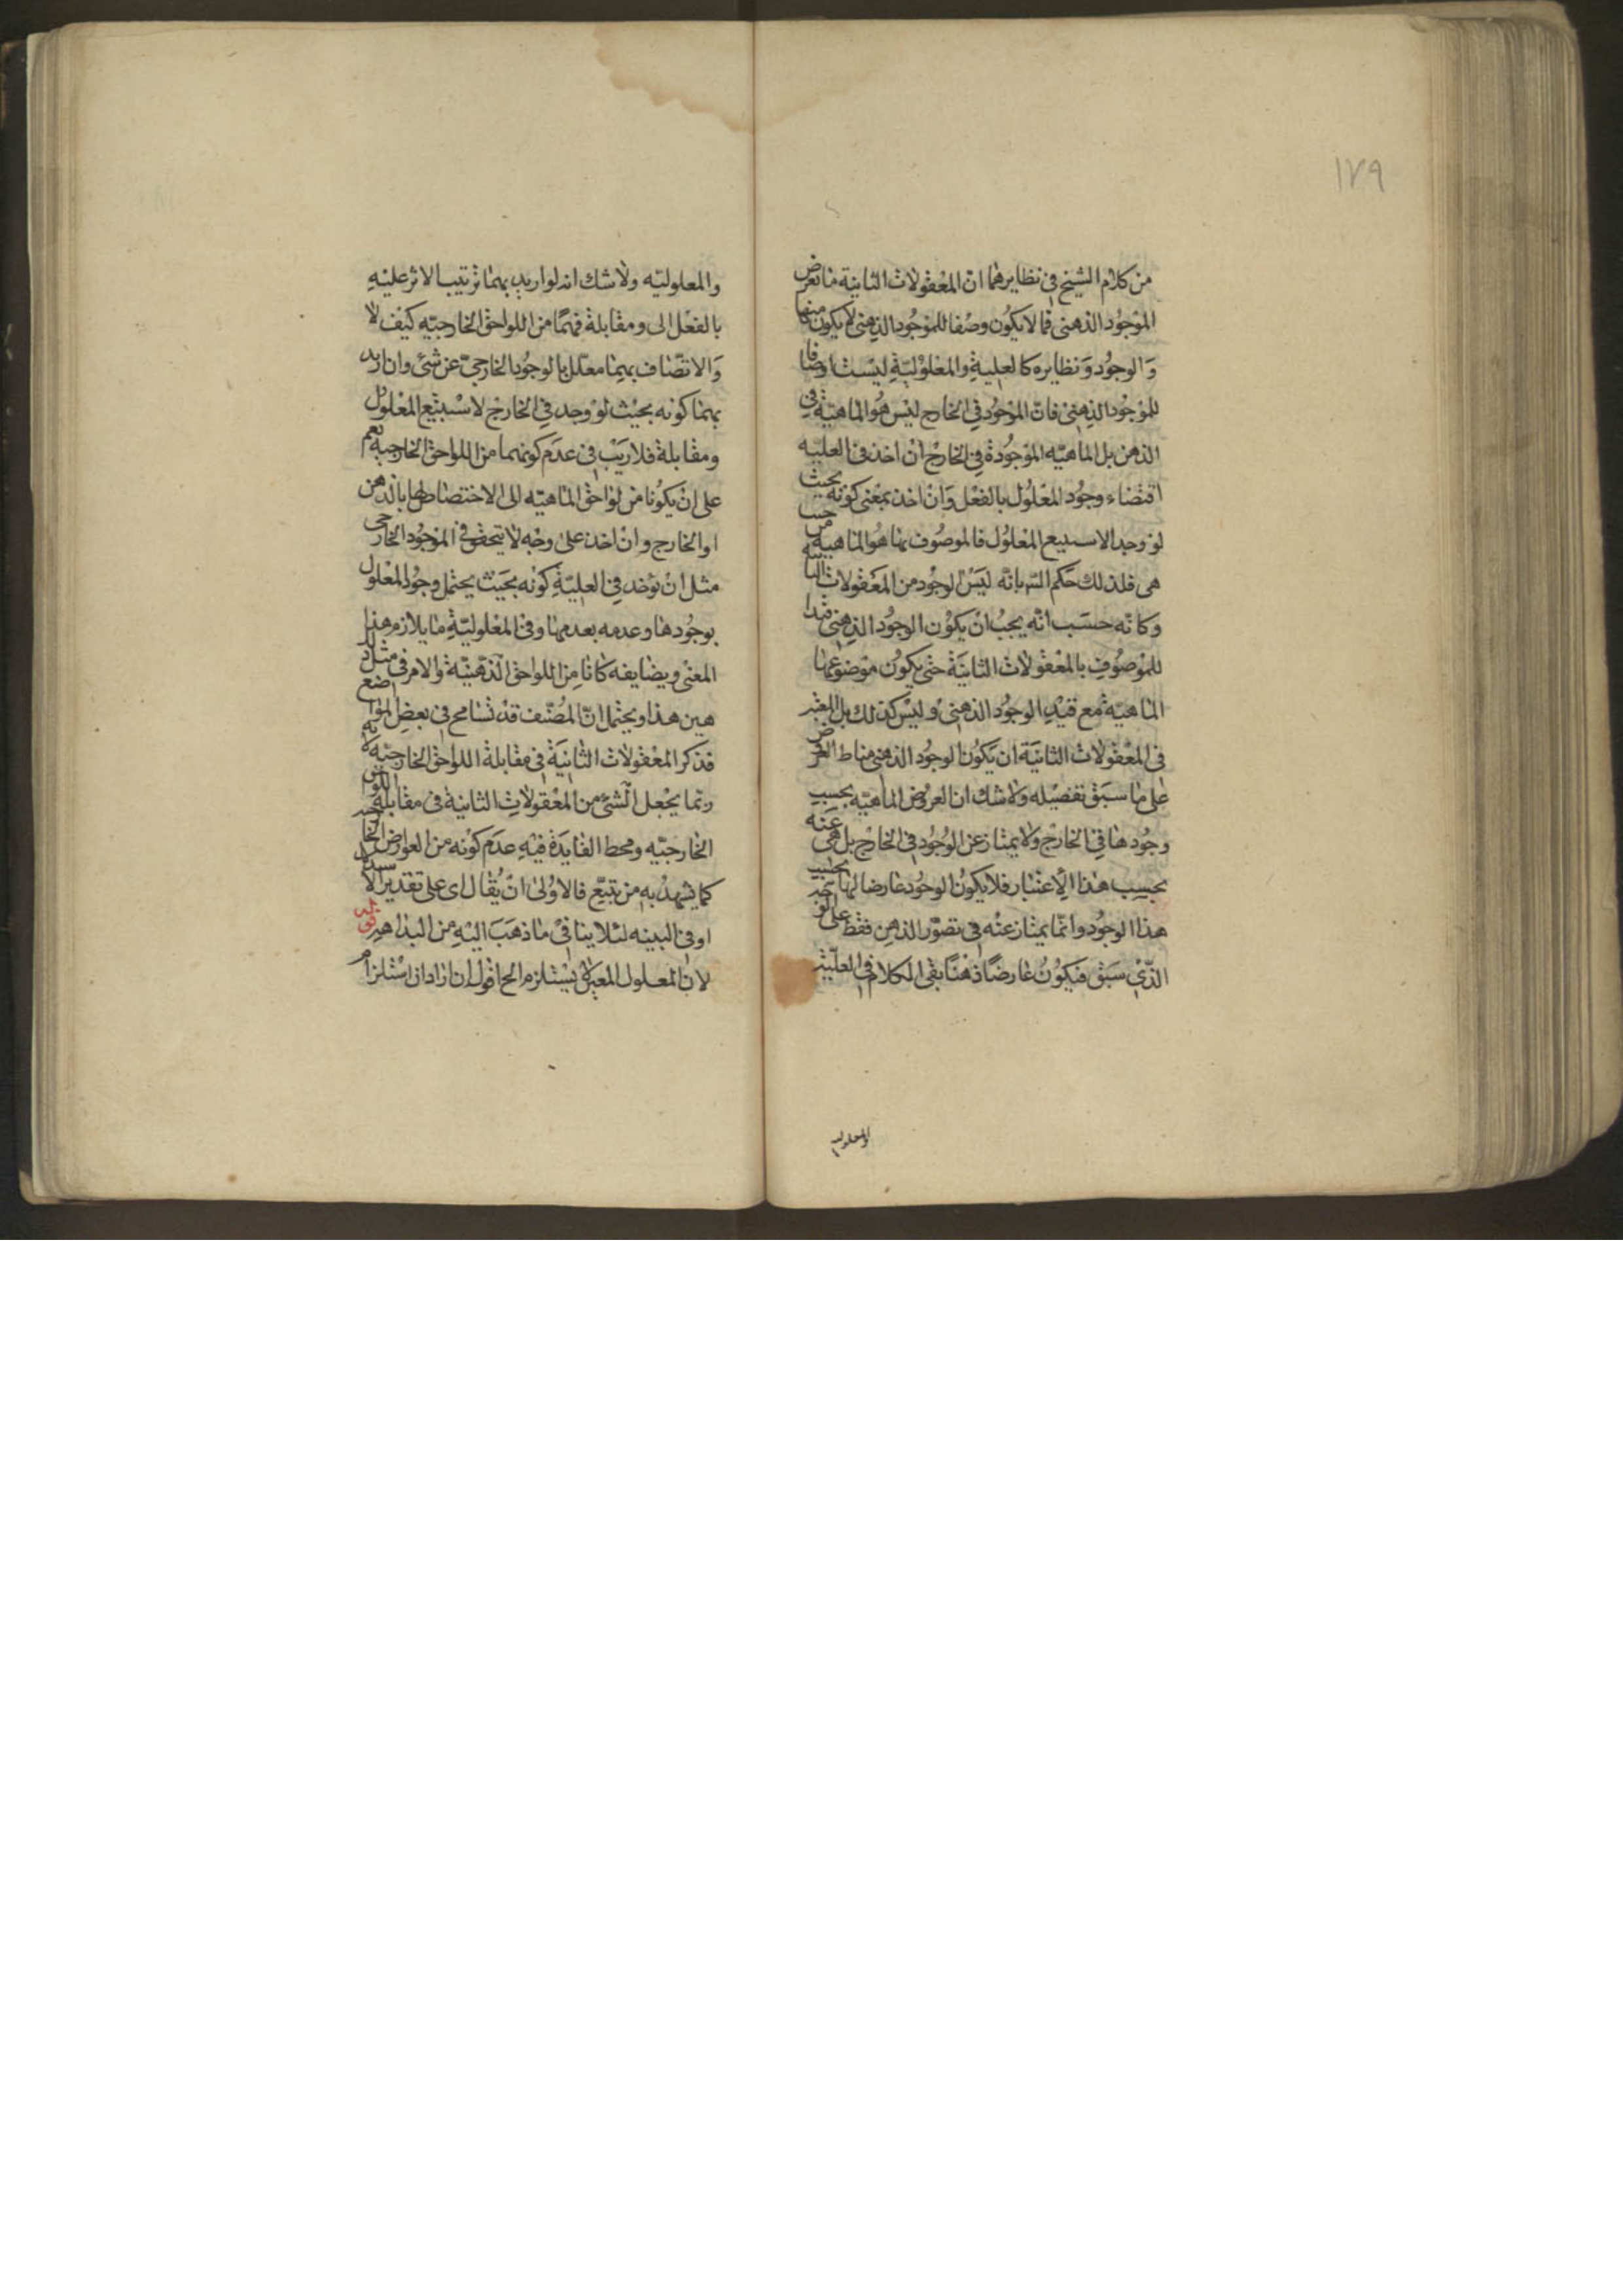 ١٧٩
من كلام الشيخ في نظايرهما ان المعقولات الثانية ما تعرض
الموجود الذهنى فما لا يكون وصفا للموجود الذهنى لا يكون منها
والوجود ونظايره كالعلية والمعلولية ليست اوصافا
للموجود الذهنى فان الموجود في الخارج ليس هو الماهية في
الذهن بل الماهيه الموجودة في الخارج ان اخذ في العليه
اقتضاء وجود المعلول بالفعل وان اخذ بمعنى كونه بحيث
لو وجد الاستتبع المعلول فالموصوف بها هو الماهية من حيث
هى فلذلك حكم السيد بانه ليس الوجود من المعقولات الثانية
وكانه حسب انه يجب ان يكون الوجود الذهنى قيدا
للموصوف بالمعقولات الثانية حتى يكون موضوعها
الماهية مع قيد الوجود الذهنى وليس كذلك بل المعتبر
فى المعقولات الثانية ان يكون الوجود الذهنى مناط العروض
على ما سبق تفصيله ولا شك ان العروض الماهيه بحسب
وجودها في الخارج ولا يمتاز عن الوجود في الخارج بل هى عينه
بحسب هذا الاعتبار فلا يكون الوجود عارضا لها بحسب
هذا الوجود وانما يمتاز عنه في تصور الذهن فقط على الوجه
الذى سبق فيكون عارضا ذهنيا بقى الكلام في العلية
والمعلولية
والمعلوليه ولا شك انه لو اريد بهما ترتيب الاثر عليه
بالفعل الى ومقابلة فهما من اللواحق الخارجيه كيف لا
والاتصاف بهما معلل بالوجود الخارجى عن شئ وان اريد
بهما كونه بحيث لو وجد في الخارج لاستتبع المعلول
ومقابلة فلا ريب في عدم كونهما من اللواحق الخارجية نعم
على ان يكونا من لواحق الماهيه الى الاختصاص لها بالذهن
او الخارج وان اخذ على وجه لا يتحقق في الموجود الخارجى
مثل ان نوخذ في العلية كونه بحيث يحتمل وجود المعلول
بوجودها وعدمه بعدمها وفى المعلولية ما يلازم هذا
المعنى ويضايفه كانا من اللواحق الذهنية والامر فى مثل
هين هذا ويحتمل ان المصنف قد تسامح في بعض المواضع
فذكر المعقولات الثانية في مقابلة اللواحق الخارجية لانه
ربما يجعل الشئ من المعقولات الثانية فى مقابلة اللواحق
الخارجيه ومحط الفايدة فيه عدم كونه من العوارض الخارجية
كما يشهد به من يتتبع فالاولى ان يقال اى على تقدير الا
او فى البينه لئلا ينافى ما ذهب اليه من البداهة قوله
لان المعلول المعين لا يستلزم الخ اقول ان اراد ان استلزام